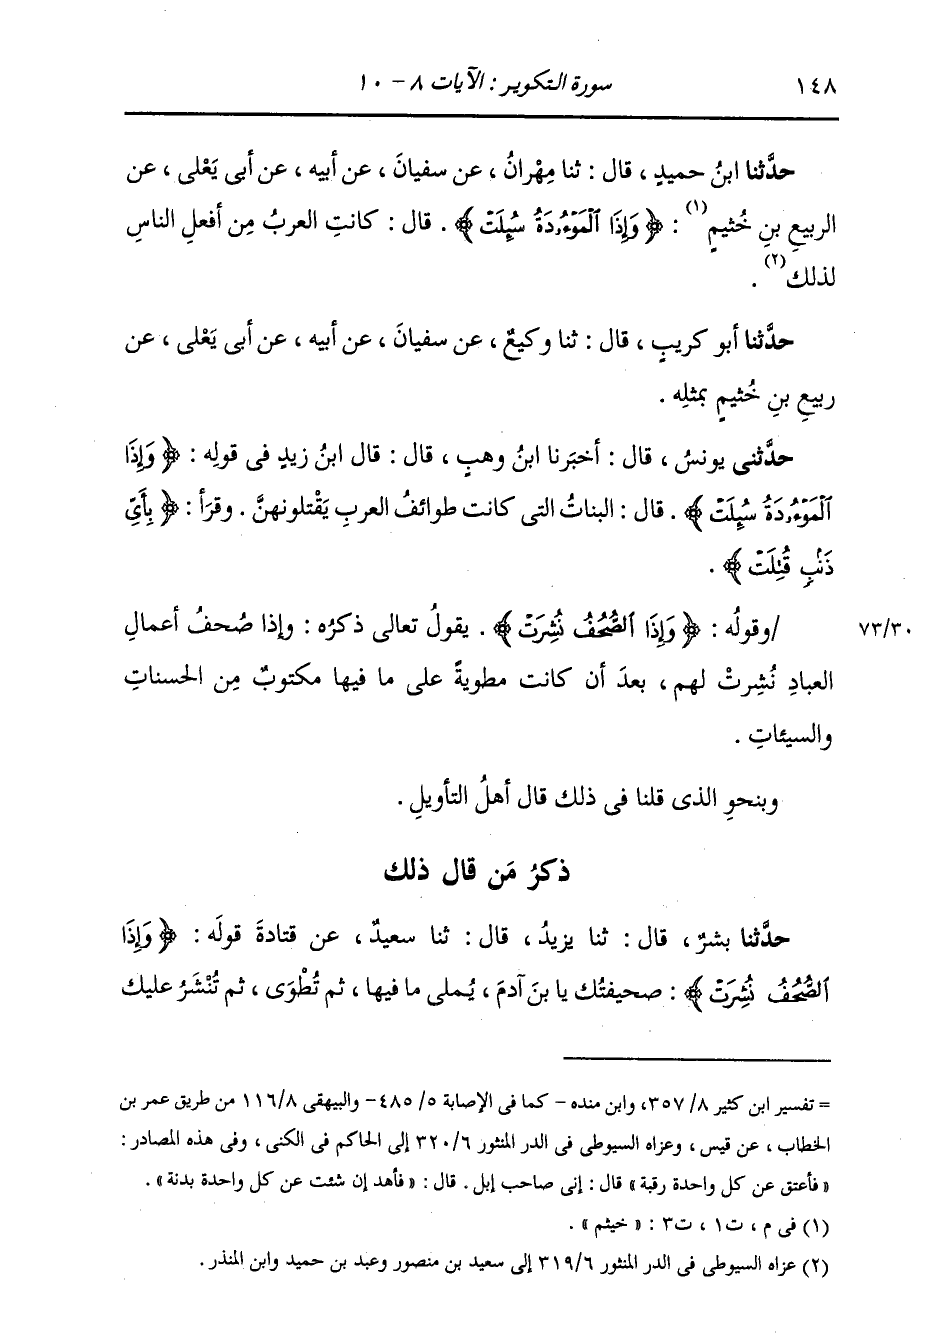 ١٤٨ سورة التكوير : الآيات ٨ - ١٠
حدَّثنا ابنُ حميدٍ ، قال : ثنا مِهْرانُ ، عن سفيانَ ، عن أبيه ، عن أبى يَعْلى ، عن
الربيعِ بنِ خُثيمٍ(١) : ﴿ وَإِذَا ٱلْمَوْءُۥدَةُ سُئِلَتْ ﴾ . قال : كانتِ العربُ مِن أفعلِ الناسِ
لذلك(٢) .
حدَّثنا أبو كريبٍ ، قال : ثنا وكيعٌ ، عن سفيانَ ، عن أبيه ، عن أبى يَعْلى ، عن
ربيعِ بنِ خُثيمٍ بمثلِه .
حدَّثنى يونسُ ، قال : أخبَرنا ابنُ وهبٍ ، قال : قال ابنُ زيدٍ فى قولِه : ﴿ وَإِذَا
ٱلْمَوْءُۥدَةُ سُئِلَتْ ﴾ . قال : البناتُ التى كانت طوائفُ العربِ يَقْتلونهنَّ . وقرَأ : ﴿ بِأَيِّ
ذَنۢبٍ قُتِلَتْ ﴾ .
/وقولُه : ﴿ وَإِذَا ٱلصُّحُفُ نُشِرَتْ ﴾ . يقولُ تعالى ذكرُه : وإذا صُحفُ أعمالِ ٧٣/٣٠
العبادِ نُشِرتْ لهم ، بعدَ أن كانت مطويةً على ما فيها مكتوبٌ مِن الحسناتِ
والسيئاتِ .
وبنحوِ الذى قلنا فى ذلك قال أهلُ التأويلِ .
ذكرُ مَن قال ذلك
حدَّثنا بشرٌ ، قال : ثنا يزيدُ ، قال : ثنا سعيدٌ ، عن قتادةَ قولَه : ﴿ وَإِذَا
ٱلصُّحُفُ نُشِرَتْ ﴾ : صحيفتُك يا بنَ آدمَ ، يُملى ما فيها ، ثم تُطْوَى ، ثم تُنْشَرُ عليك
= تفسير ابن كثير ٨/ ٣٥٧، وابن منده - كما فى الإصابة ٥/ ٤٨٥- والبيهقى ١١٦/٨ من طريق عمر بن
الخطاب ، عن قيس ، وعزاه السيوطى فى الدر المنثور ٣٢٠/٦ إلى الحاكم فى الكنى ، وفى هذه المصادر :
« فأعتق عن كل واحدة رقبة » قال : إنى صاحب إبل . قال : « فأهد إن شئت عن كل واحدة بدنة » .
(١) فى م ، ت١ ، ت٣ : « خيثم » .
(٢) عزاه السيوطى فى الدر المنثور ٣١٩/٦ إلى سعيد بن منصور وعبد بن حميد وابن المنذر .